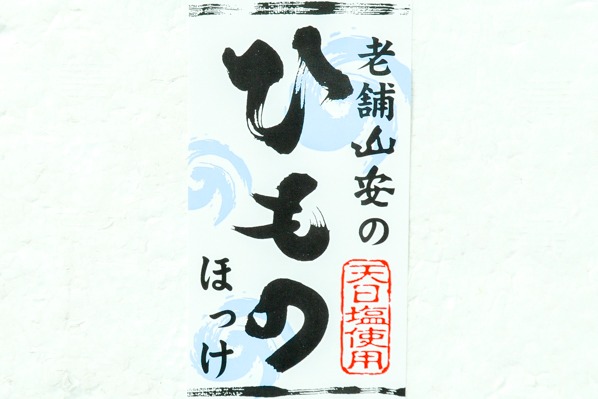 老舗山安の
天日塩使用
ひもの
ほっけ